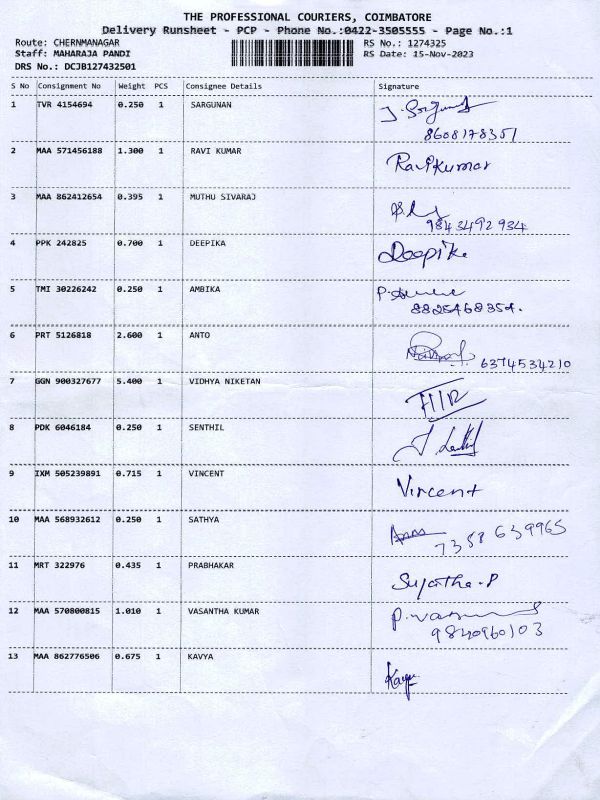 THE PROFESSIONAL COURIERS, COIMBATORE
Delivery Runsheet - PCP - Phone No.:0422-3505555 - Page No.:1
Route: CHERNMANAGAR RS No.: 1274325
Staff: MAHARAJA PANDI RS Date: 15-Nov-2023
DRS No.: DCJB127432501
S No Consignment No Weight PCS Consignee Details Signature
1 TVR 4154694 0.250 1 SARGUNAN J. Sargunan
8608178351
2 MAA 571456188 1.300 1 RAVI KUMAR Ravikumar
3 MAA 862412654 0.395 1 MUTHU SIVARAJ
9843492934
4 PPK 242825 0.700 1 DEEPIKA Deepika
5 TMI 30226242 0.250 1 AMBIKA
8825468354.
6 PRT 5126818 2.600 1 ANTO 6374534210
7 GGN 900327677 5.400 1 VIDHYA NIKETAN
8 PDK 6046184 0.250 1 SENTHIL
9 IXM 505239891 0.715 1 VINCENT Vincent
10 MAA 568932612 0.250 1 SATHYA 7358639965
11 MRT 322976 0.435 1 PRABHAKAR Sujatha.P
12 MAA 570800815 1.010 1 VASANTHA KUMAR
9840960103
13 MAA 862776506 0.675 1 KAVYA